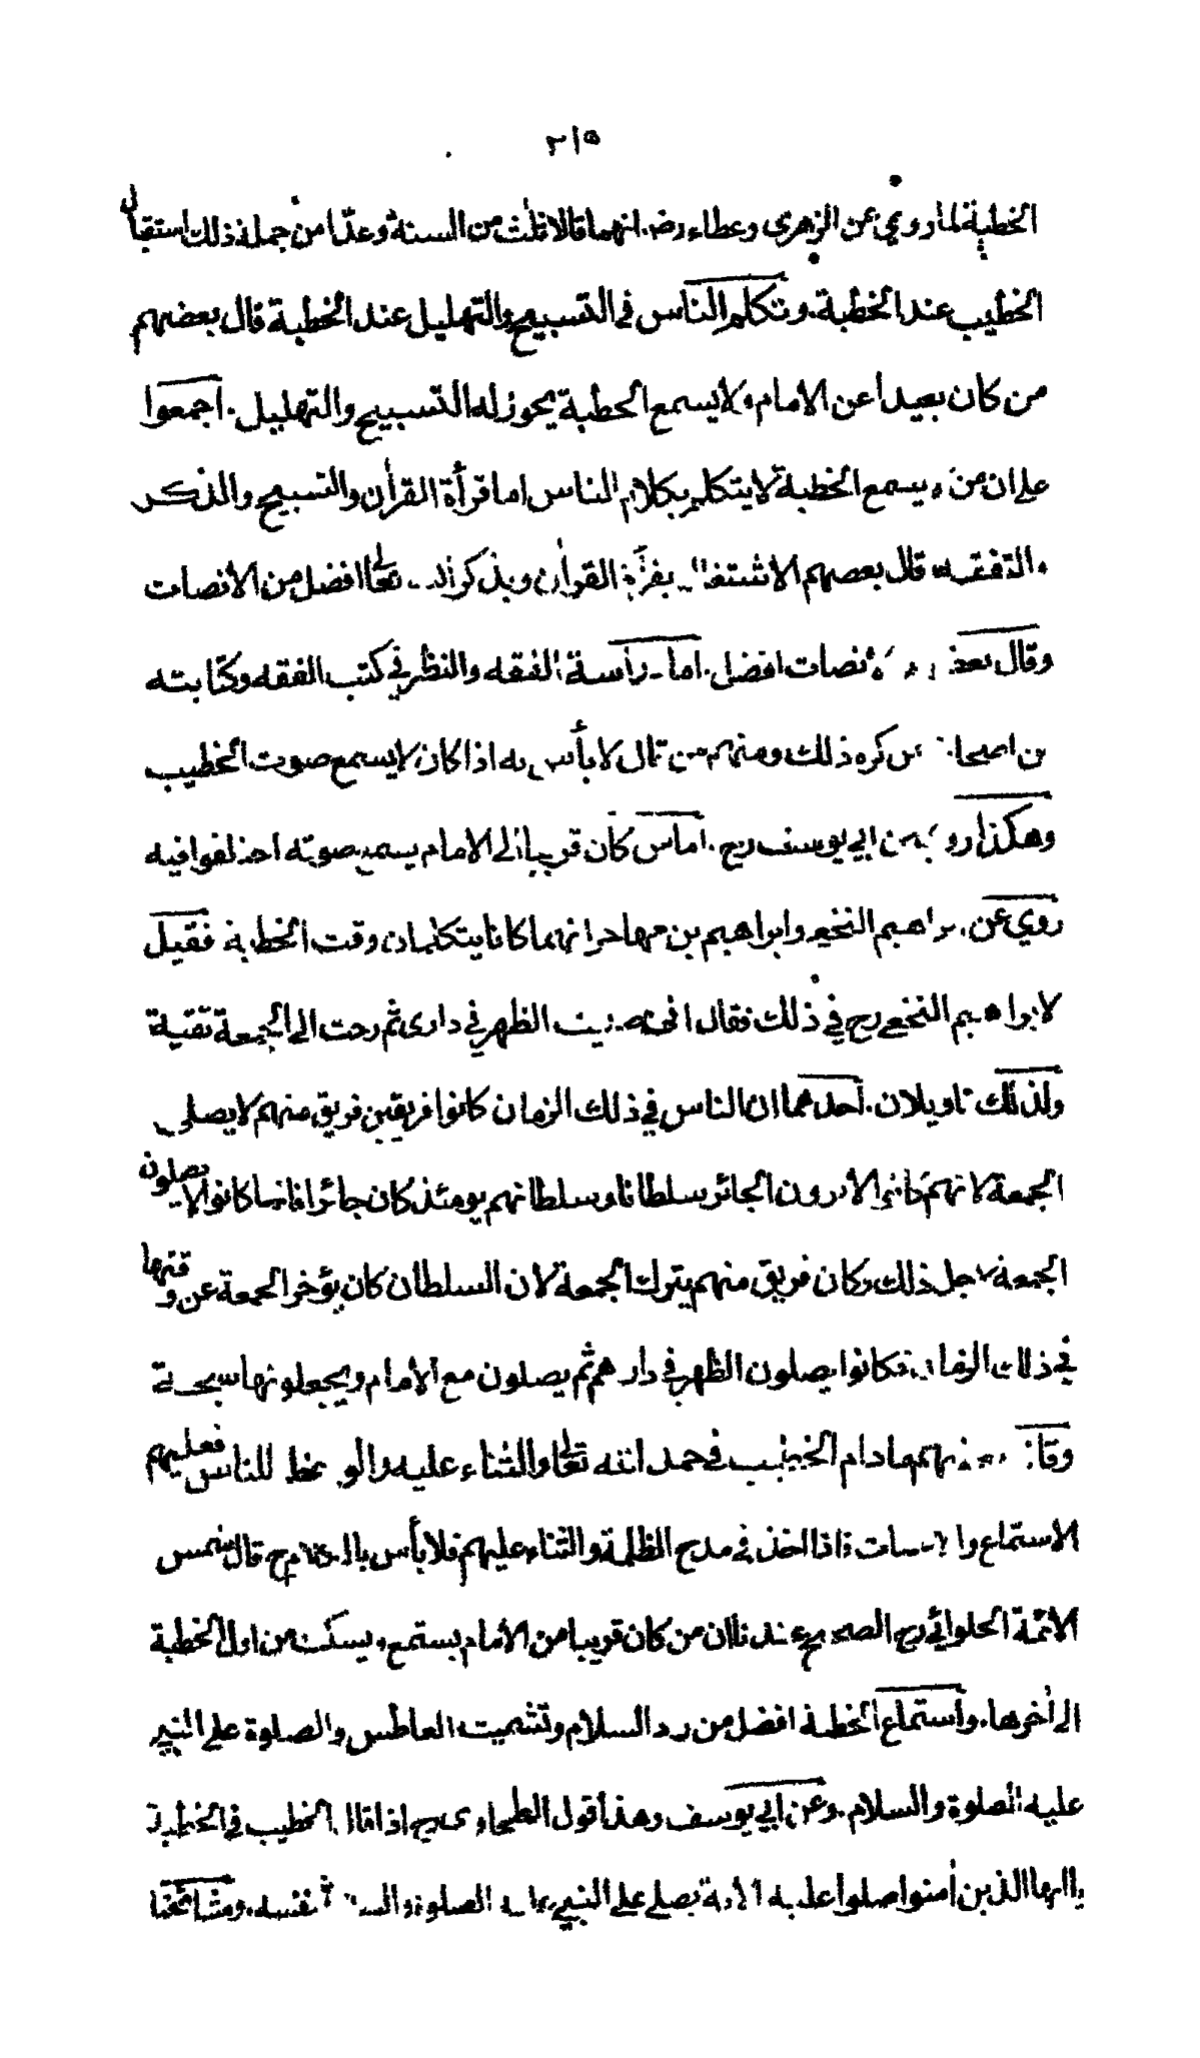 ٢١٥
الخطبة لما روي عن الزهري وعطاء رضـ انهما قالا ثلث من السنة وعدّا من جملة ذلك استقبال
الخطيب عند الخطبة. وتكلم الناس في التسبيح والتهليل عند الخطبة قال بعضهم
من كان بعيدا عن الامام ولا يسمع الخطبة يجوز له التسبيح والتهليل. اجمعوا
على ان من يسمع الخطبة لا يتكلم بكلام الناس اما قرأة القرأن والتسبيح والذكر
والتفقه قال بعضهم الاشتغال بقرأة القرأن وبذكر الله تعالى افضل من الأنصات
وقال انصات افضل. اما دراسة الفقه والنظر في كتب الفقه وكتابته
من كره ذلك ومنهم من قال لا بأس به اذا كان لا يسمع صوت الخطيب
وهكذا روي عن ابي يوسف رح. اما من كان قريبا الى الامام يسمع صوته اختلفوا فيه
روي عن ابراهيم النخعي وابراهيم بن مهاجر انهما كانا يتكلمان وقت الخطبة فقيل
لابراهيم النخعي رح في ذلك فقال اني صليت الظهر في داري ثم رحت الى الجمعة تقية
ولذلك تاويلان. احدهما ان الناس في ذلك الزمان كانوا فريقين فريق منهم لا يصلي
الجمعة لانهم كانوا لا يرون الجائر سلطانا وسلطانهم يومئذ كان جائرا فانما كانوا لا يصلون
الجمعة لاجل ذلك وكان فريق منهم يترك الجمعة لان السلطان كان يؤخر الجمعة عن وقتها
في ذلك الزمان فكانوا يصلون الظهر في دارهم ثم يصلون مع الأمام ويجعلونها سبحة
وقال بعضهم ما دام الخطيب في حمد الله تعالى والثناء عليه والوعظ للناس فعليهم
الاستماع والانصات فاذا اخذ في مدح الظلمة والثناء عليهم فلا بأس بالكلام ح قال شمس
الائمة الحلوائي رح الصحيح عندنا ان من كان قريبا من الأمام يستمع ويسكت من اول الخطبة
الى أخرها. واستماع الخطبة افضل من رد السلام وتشميت العاطس والصلوة على النبي
عليه الصلوة والسلام. وعن ابي يوسف وهذا قول الطحاوي رح اذا قال الخطيب في الخطبة
يا ايها الذين أمنوا صلوا عليه الأية يصلي على النبي عليه الصلوة والسلام نفسه. ومشائخنا